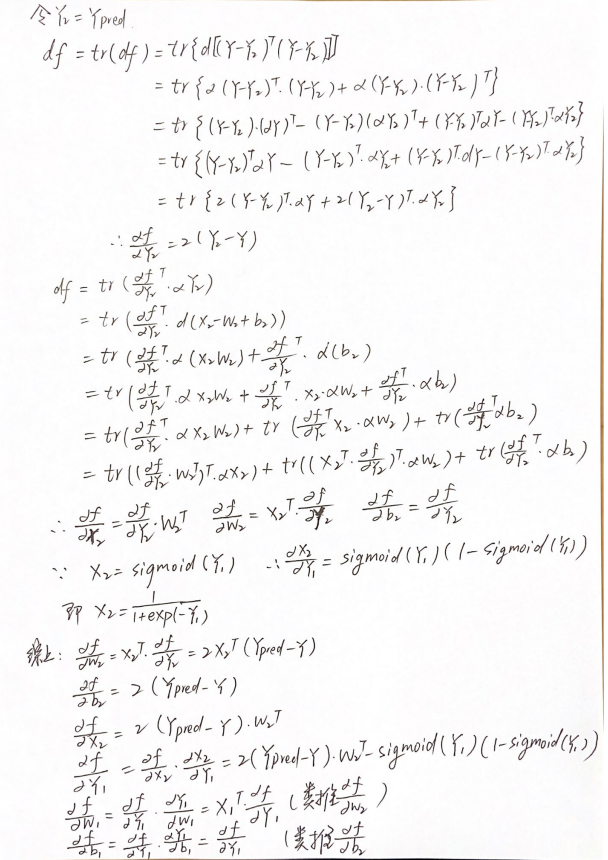 令 Y₂ = Ypred
df = tr(df) = tr{d[(Y-Y₂)ᵀ(Y-Y₂)]}
= tr{d(Y-Y₂)ᵀ·(Y-Y₂) + d(Y-Y₂)·(Y-Y₂)ᵀ}
= tr{(Y-Y₂)·(dY)ᵀ - (Y-Y₂)(dY₂)ᵀ + (Y-Y₂)ᵀdY - (Y-Y₂)ᵀ·dY₂}
= tr{(Y-Y₂)ᵀdY - (Y-Y₂)ᵀ·dY₂ + (Y-Y₂)ᵀ·dY - (Y-Y₂)ᵀ·dY₂}
= tr{2(Y-Y₂)ᵀ·dY + 2(Y₂-Y)ᵀ·dY₂}
∴ ∂f/∂Y₂ = 2(Y₂-Y)
df = tr(∂f/∂Y₂ᵀ·dY₂)
= tr(∂f/∂Y₂ᵀ·d(X₂-W₂+b₂))
= tr(∂f/∂Y₂ᵀ·d(X₂W₂) + ∂f/∂Y₂ᵀ·d(b₂)
= tr(∂f/∂Y₂ᵀ·dX₂W₂ + ∂f/∂Y₂ᵀ·X₂·dW₂ + ∂f/∂Y₂ᵀ·db₂)
= tr(∂f/∂Y₂ᵀ·dX₂W₂) + tr(∂f/∂Y₂ᵀX₂·dW₂) + tr(∂f/∂Y₂ᵀdb₂)
= tr((∂f/∂Y₂·W₂ᵀ)ᵀ·dX₂) + tr((X₂ᵀ·∂f/∂Y₂)ᵀ·dW₂) + tr(∂f/∂Y₂ᵀ·db₂)
∴ ∂f/∂X₂ = ∂f/∂Y₂·W₂ᵀ ∂f/∂W₂ = X₂ᵀ·∂f/∂Y₂ ∂f/∂b₂ = ∂f/∂Y₂
∵ X₂ = sigmoid(Y₁) ∴ ∂X₂/∂Y₁ = sigmoid(Y₁)(1-sigmoid(Y₁))
即 X₂ = 1/(1+exp(-Y₁)
综上: ∂f/∂W₂ = X₂ᵀ·∂f/∂Y₂ = 2X₂ᵀ(Ypred-Y)
∂f/∂b₂ = 2(Ypred-Y)
∂f/∂X₂ = 2(Ypred-Y)·W₂ᵀ
∂f/∂Y₁ = ∂f/∂X₂·∂X₂/∂Y₁ = 2(Ypred-Y)·W₂ᵀ-sigmoid(Y₁)(1-sigmoid(Y₁))
∂f/∂W₁ = ∂f/∂Y₁·∂Y₁/∂W₁ = X₁ᵀ·∂f/∂Y₁ (类推∂f/∂W₂)
∂f/∂b₁ = ∂f/∂Y₁·∂Y₁/∂b₁ = ∂f/∂Y₁ (类推∂f/∂b₂